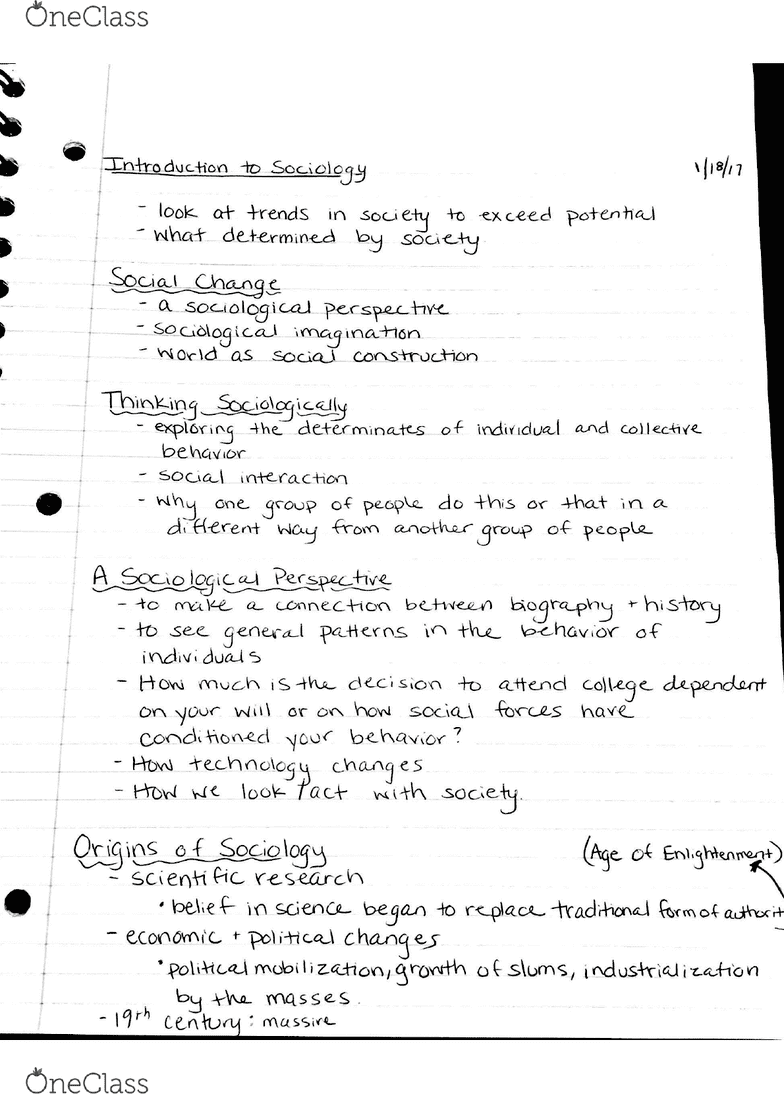 OneClass
Introduction to Sociology
1/18/17
- look at trends in society to exceed potential
- what determined by society
Social Change
- a sociological perspective
- sociological imagination
- world as social construction
Thinking Sociologically
- exploring the determinates of individual and collective
behavior
- social interaction
- why one group of people do this or that in a
different way from another group of people
A Sociological Perspective
- to make a connection between biography + history
- to see general patterns in the behavior of
individuals
- How much is the decision to attend college dependent
on your will or on how social forces have
conditioned your behavior?
- How technology changes
- How we look /act with society.
Origins of Sociology
(Age of Enlightenment)
- scientific research
• belief in science began to replace traditional form of authorit
- economic + political changes
• political mobilization, growth of slums, industrialization
by the masses.
- 19th century: massive
OneClass